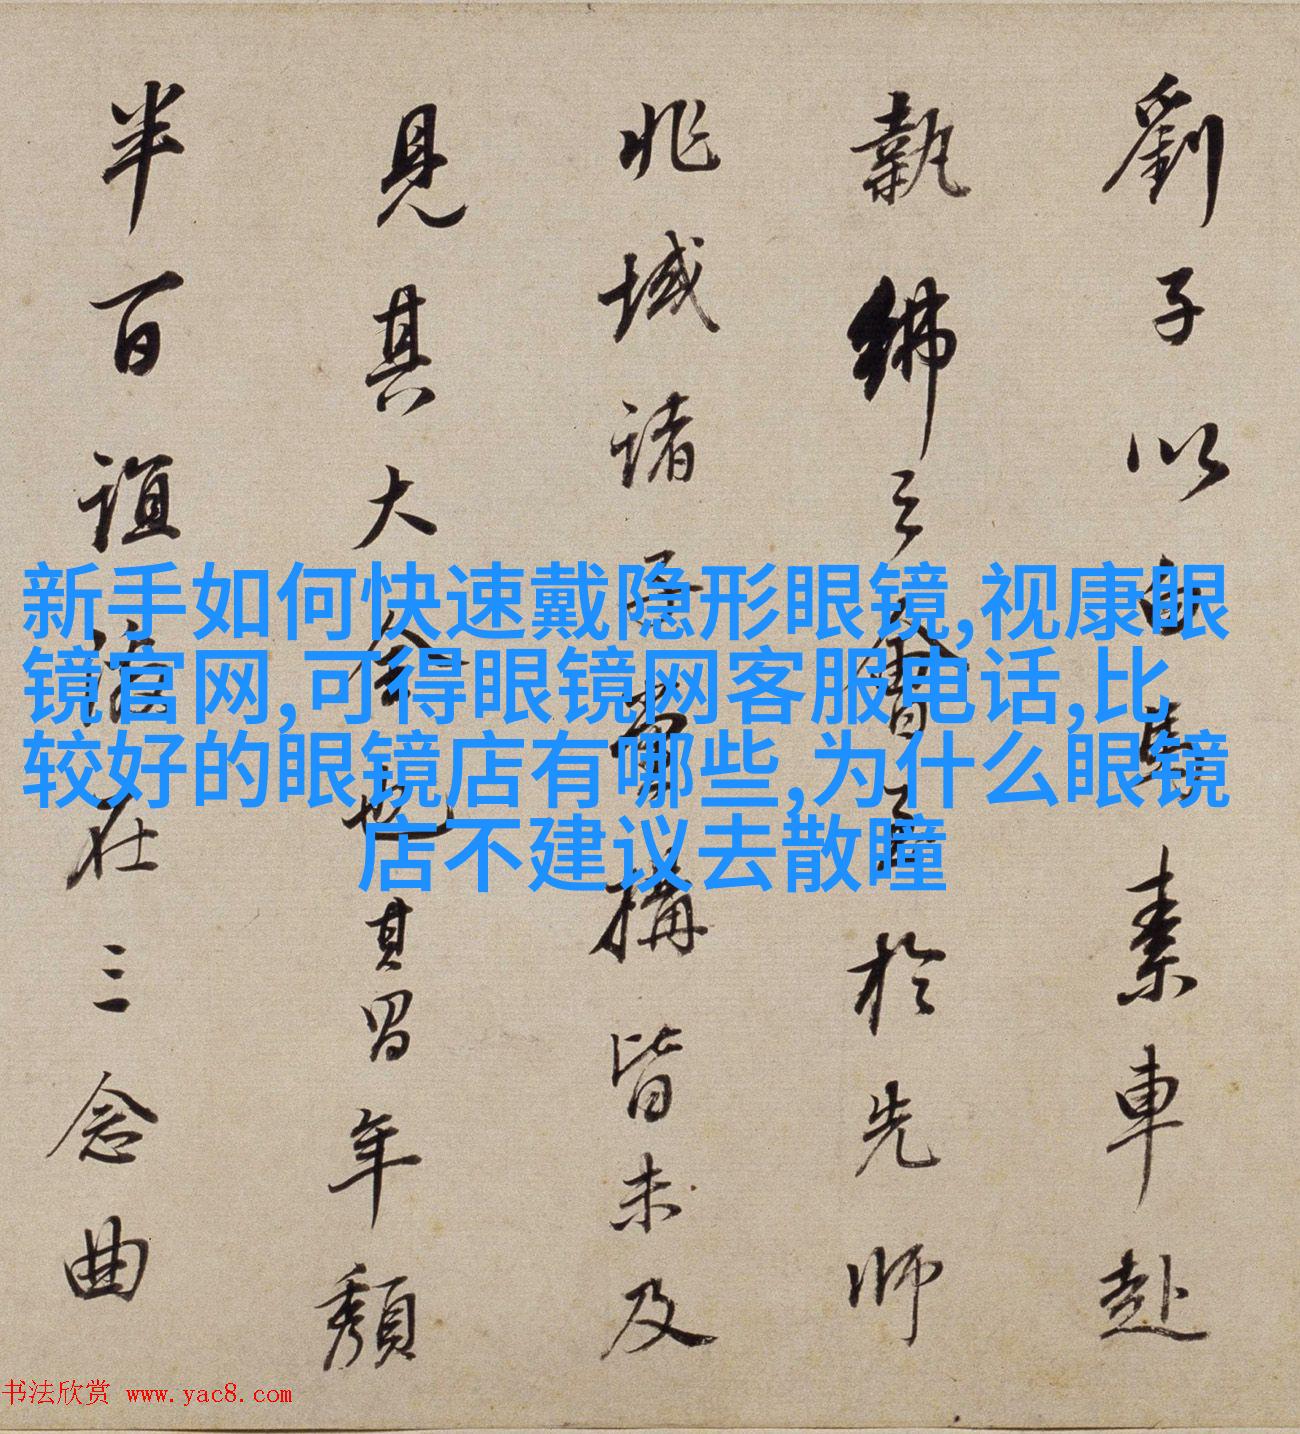 劉子以白馬素車赴
執紼之會至於先師
兆域諸孫㫺構皆未及
見其大全也其四年頹
半百誼流在三念曲
新手如何快速戴隐形眼镜,视康眼
镜官网,可得眼镜网客服电话,比
较好的眼镜店有哪些,为什么眼镜
店不建议去散瞳
书法欣赏 www.yac8.com